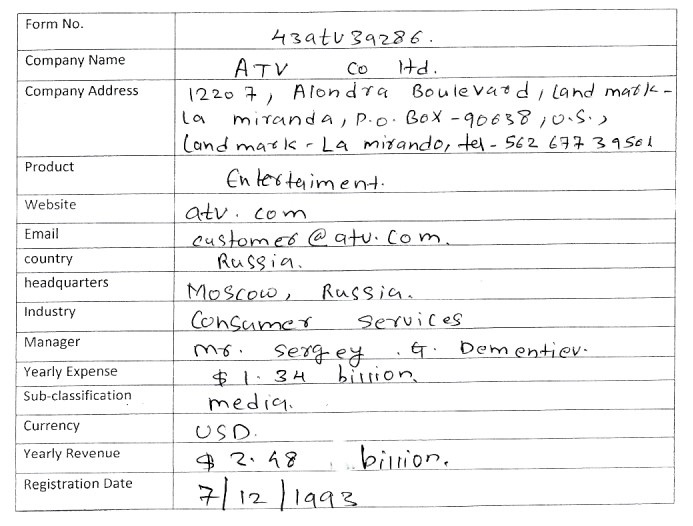 Form No. 43atv39286.
Company Name ATV Co ltd.
Company Address 12207, Alondra Boulevard, land mark-
la miranda, P.O. Box -90638, U.S.,
land mark - La mirando, tel - 562 677 39501
Product Entertaiment.
Website atv.com
Email customer@atv.com.
country Russia.
headquarters Moscow, Russia.
Industry Consumer Services
Manager mr. Sergey .G. Dementiev.
Yearly Expense $ 1.34 billion.
Sub-classification media.
Currency USD.
Yearly Revenue $ 2.48 billion.
Registration Date 7/12/1993